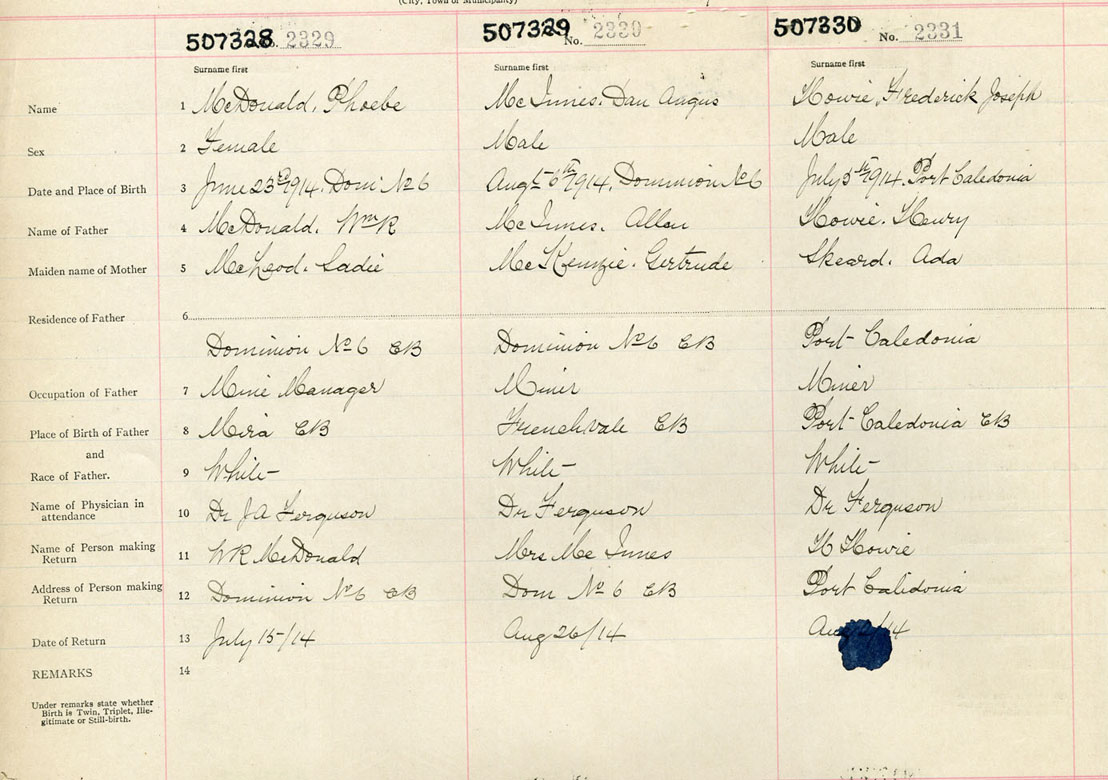 (City, Town or Municipality)
507328 No. 2329 507329 No. 2330 507330 No. 2331
Surname first Surname first Surname first
Name 1 McDonald. Phoebe McInnes. Dan Angus Howie, Frederick Joseph
Sex 2 Female Male Male
Date and Place of Birth 3 June 23rd 1914. Dom: No 6 Augt 6th 1914. Dominion No 6 July 5th 1914. Port Caledonia
Name of Father 4 McDonald. Wm R McInnes. Allan Howie. Henry
Maiden name of Mother 5 McLeod. Sadie McKenzie. Gertrude Skeard. Ada
Residence of Father 6
Dominion No 6 CB Dominion No 6 CB Port Caledonia
Occupation of Father 7 Mine Manager Miner Miner
Place of Birth of Father 8 Mira CB Frenchvale CB Port Caledonia CB
and
Race of Father. 9 White White White
Name of Physician in
attendance 10 Dr JA Ferguson Dr Ferguson Dr Ferguson
Name of Person making
Return 11 WR McDonald Mrs McInnes H Howie
Address of Person making
Return 12 Dominion No 6 CB Dom No 6 CB Port Calidonia
Date of Return 13 July 15/14 Aug 26/14 /14
REMARKS 14
Under remarks state whether
Birth is Twin, Triplet, Ille-
gitimate or Still-birth.